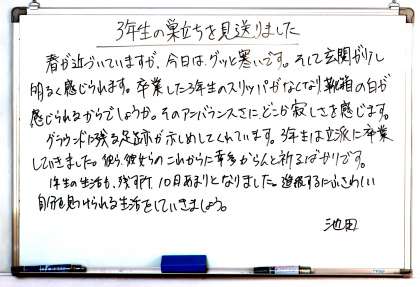 3年生の巣立ちを見送りました
春が近づいていますが、今日は、グッと寒いです。そして玄関が少し
明るく感じられます。卒業した3年生のスリッパがなくなり、靴箱の白が
感じられるからでしょうか。そのアンバランスさに、どこか寂しさを感じます。
グラウンドに残る足跡が示めしてくれています。3年生は立派に卒業
していきました。彼ら、彼女らのこれからに幸多からんと祈るばかりです。
1年生の生活も、残す所、10日あまりとなりました。進級するにふさわしい
自分を見つけられる生活をしていきましょう。
池田